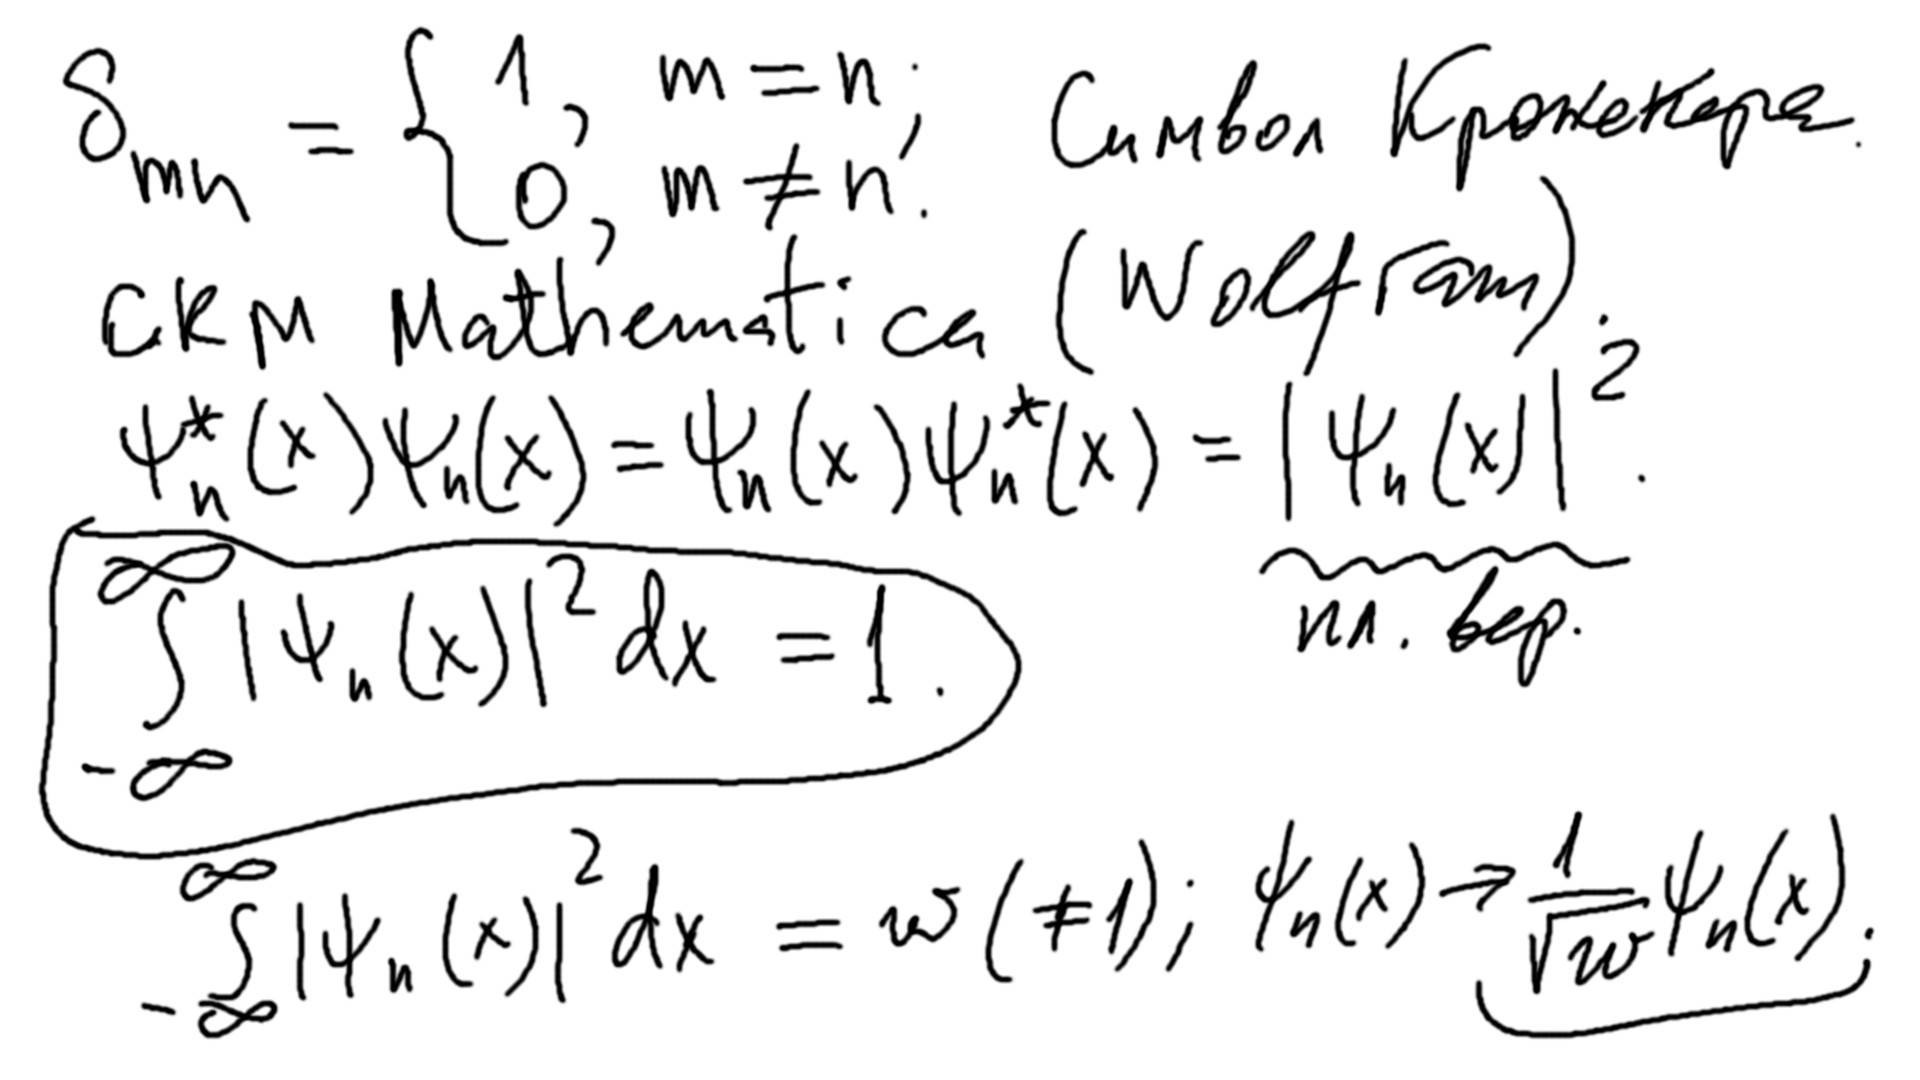 δ_mn = { 1, m = n; 0, m ≠ n. Символ Кронекера.
СКМ Mathematica (Wolfram).
ψ_n^*(x) ψ_n(x) = ψ_n(x) ψ_n^*(x) = |ψ_n(x)|^2.
пл. вер.
∫_{-∞}^{∞} |ψ_n(x)|^2 dx = 1.
∫_{-∞}^{∞} |ψ_n(x)|^2 dx = w (≠ 1); ψ_n(x) → 1/√w ψ_n(x).